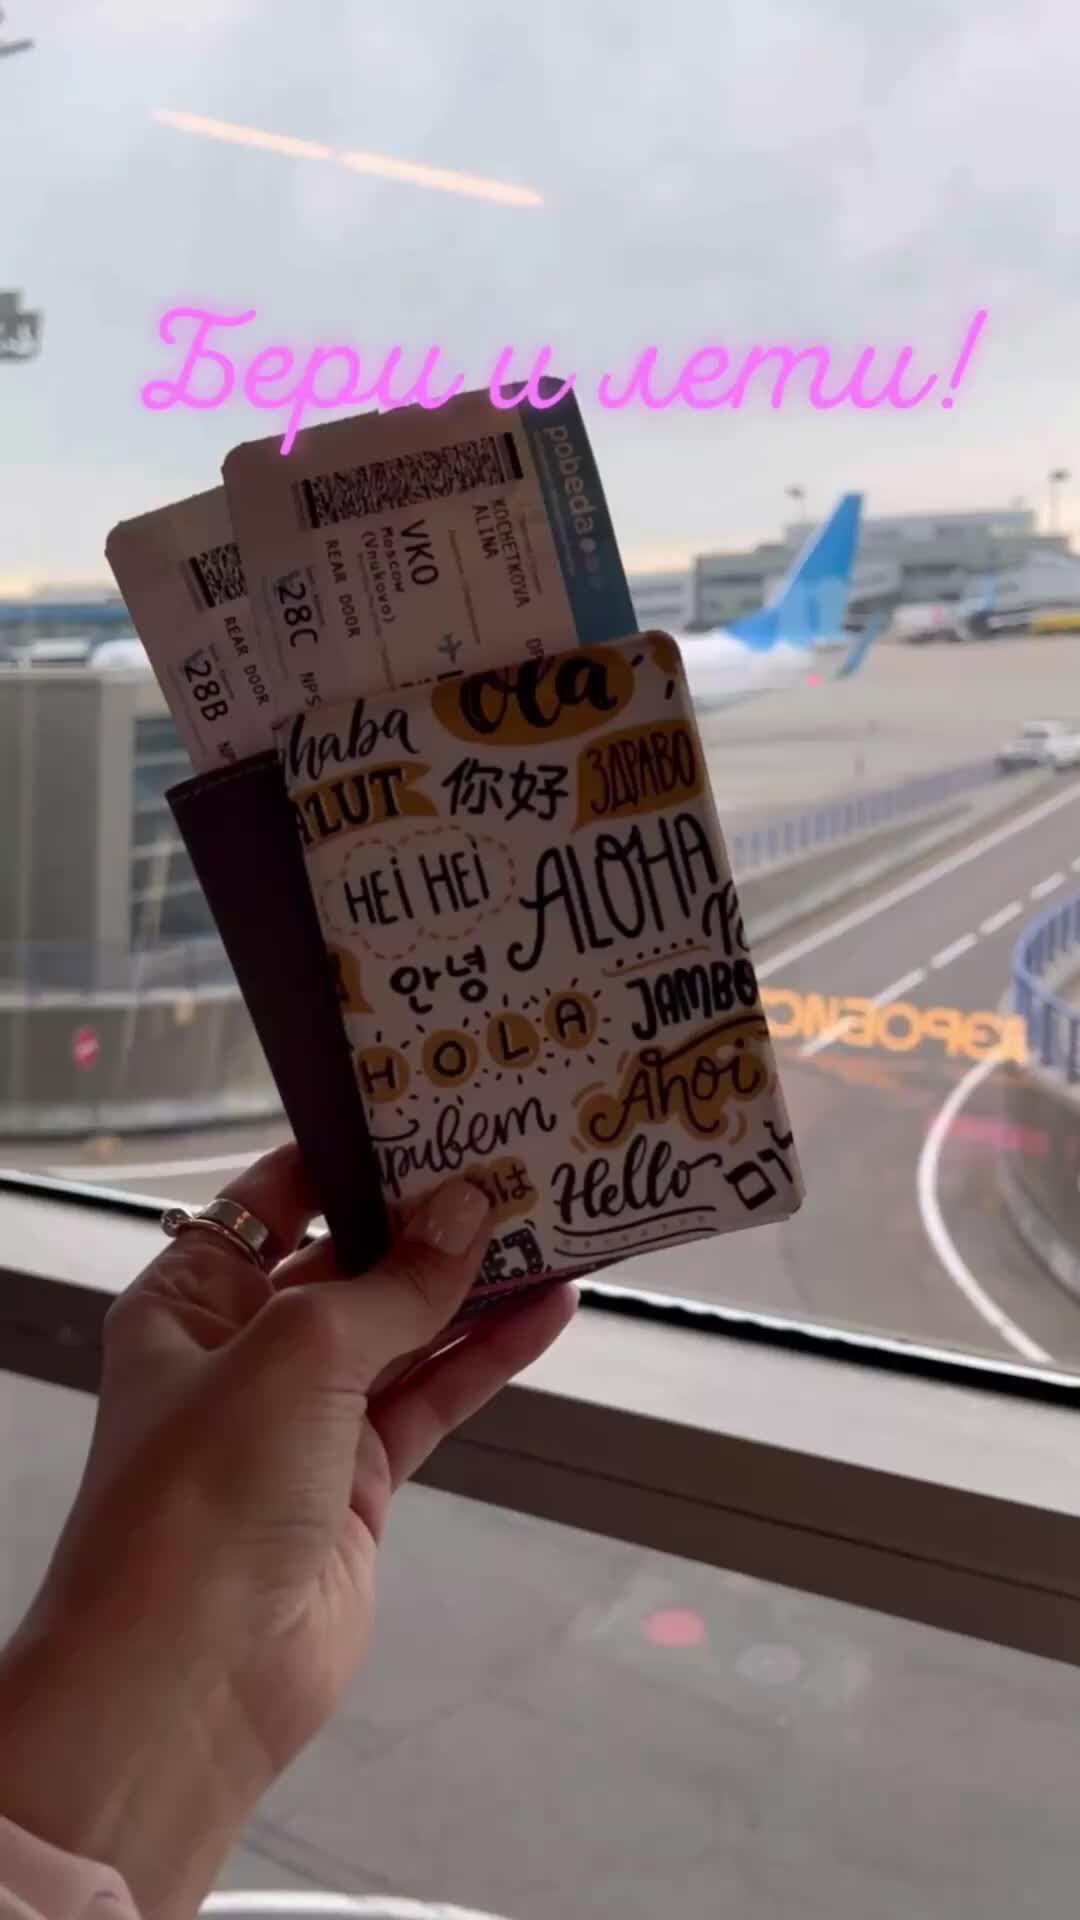 Бери и лети!
pobeda
KOCHETKOVA
ALINA
VKO
Moscow
(Vnukovo)
REAR DOOR
28C
NPS
REAR DOOR
28B
haba
Ola
ALUT
你好
ЗДРАВО
HEi HEi
ALOHA
안녕
JAMBO
HOLA
Ahoi
привет
Hello
АЭРОЕКС